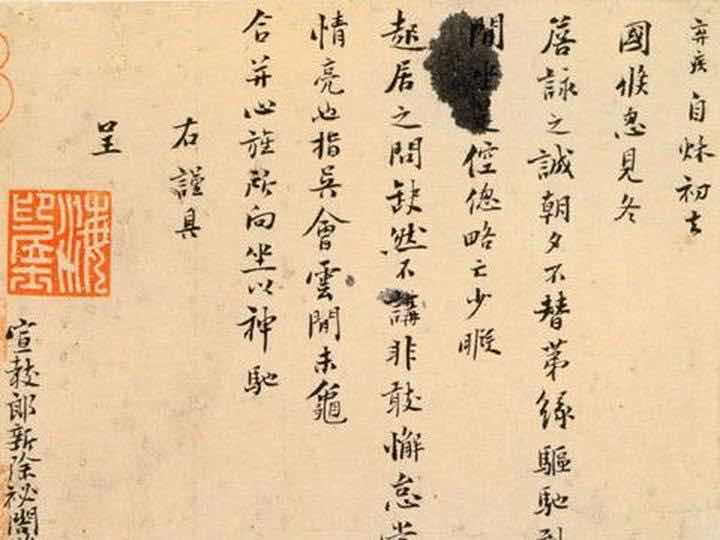 弃疾自秋初去
國倏忽見冬
詹詠之誠朝夕不替第緣驅馳到
間坐是倥傯略亡少暇
起居之問缺然不講非敢懈怠當
情亮也指吳會雲間未龜
合并心旌所向坐以神馳
右謹具
呈
宣教郎新除祕閣